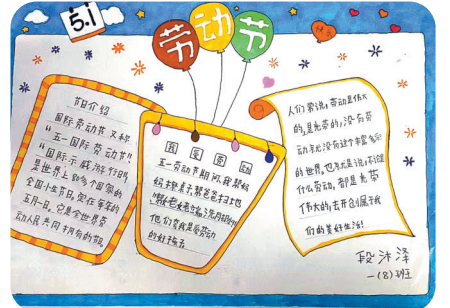 5.1
劳动节
节日介绍
国际劳动节又称
“五一国际劳动节”
“国际示威游行日”
是世界上80多个国家的
全国性节日。定在每年的
五月一日。它是全世界劳
动人民共同拥有的节日。
我爱劳动
五一劳动节期间，我帮妈
他们夸我是爱劳动
的好孩子
人们常说，劳动是伟大
的，是光荣的，没有劳
动就没有这个丰富多彩
的世界，也就是说，不论
什么劳动，都是光荣
伟大的，去开创属于我
们的美好生活！
段沐泽
一(8)班